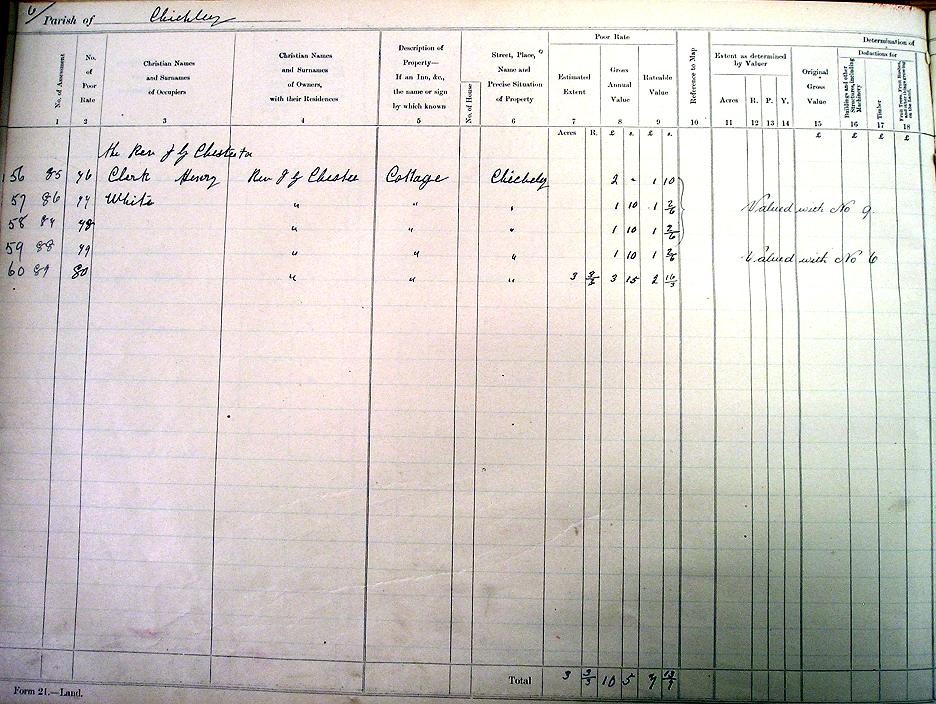 6
Parish of Chichley
Determination of
Poor Rate
No. of Assessment
No. of Poor Rate
Christian Names and Surnames of Occupiers
Christian Names and Surnames of Owners, with their Residences
Description of Property— If an Inn, &c., the name or sign by which known
No. of House
Street, Place, Name and Precise Situation of Property
Estimated Extent
Gross Annual Value
Rateable Value
Reference to Map
Extent as determined by Valuer
Acres R. P. Y.
Original Gross Value
Deductions for
Buildings and other Structures, including Machinery
Timber
Fruit Trees, Fruit Bushes, and other things growing on the land.
1 2 3 4 5 6 7 8 9 10 11 12 13 14 15 16 17 18
Acres R. £ s. £ s. £ £ £ £
the Rev J G Chester
156 85 76 Clerk Henry Rev J G Chester Cottage Chichely 2 - 1 10
57 86 77 White " " " 1 10 1 2/6 Valued with No 9.
58 87 78 " " " 1 10 1 2/6
59 88 79 " " " 1 10 1 2/6 Valued with No 6
60 89 80 " " " 3 3 15 2 16/3
Total 3 10 5 7
Form 21.—Land.